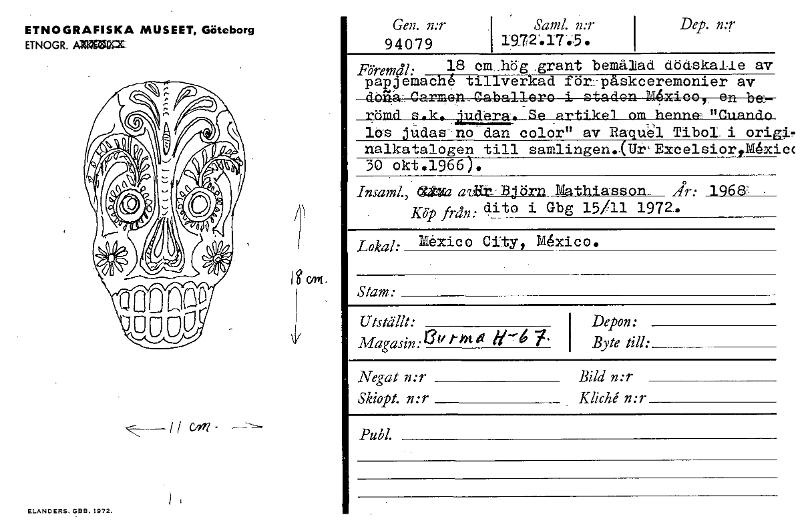 ETNOGRAFISKA MUSEET, Göteborg
ETNOGR. A
18 cm.
11 cm.
ELANDERS. GBB. 1972.
Gen. n:r Saml. n:r Dep. n:r
94079 1972.17.5.
Föremål: 18 cm hög grant bemålad dödskalle av
papjemaché tillverkad för påskceremonier av
doña Carmen Caballero i staden México, en be-
römd s.k. judera. Se artikel om henne "Cuando
los judas no dan color" av Raquel Tibol i origi-
nalkatalogen till samlingen.(Ur Excelsior,México
30 okt.1966).
Insaml., av Hr Björn Mathiasson År: 1968
Köp från: dito i Gbg 15/11 1972.
Lokal: México City, México.
Stam:
Utställt: Depon:
Magasin: Burma H-67. Byte till:
Negat n:r Bild n:r
Skiopt. n:r Kliché n:r
Publ.